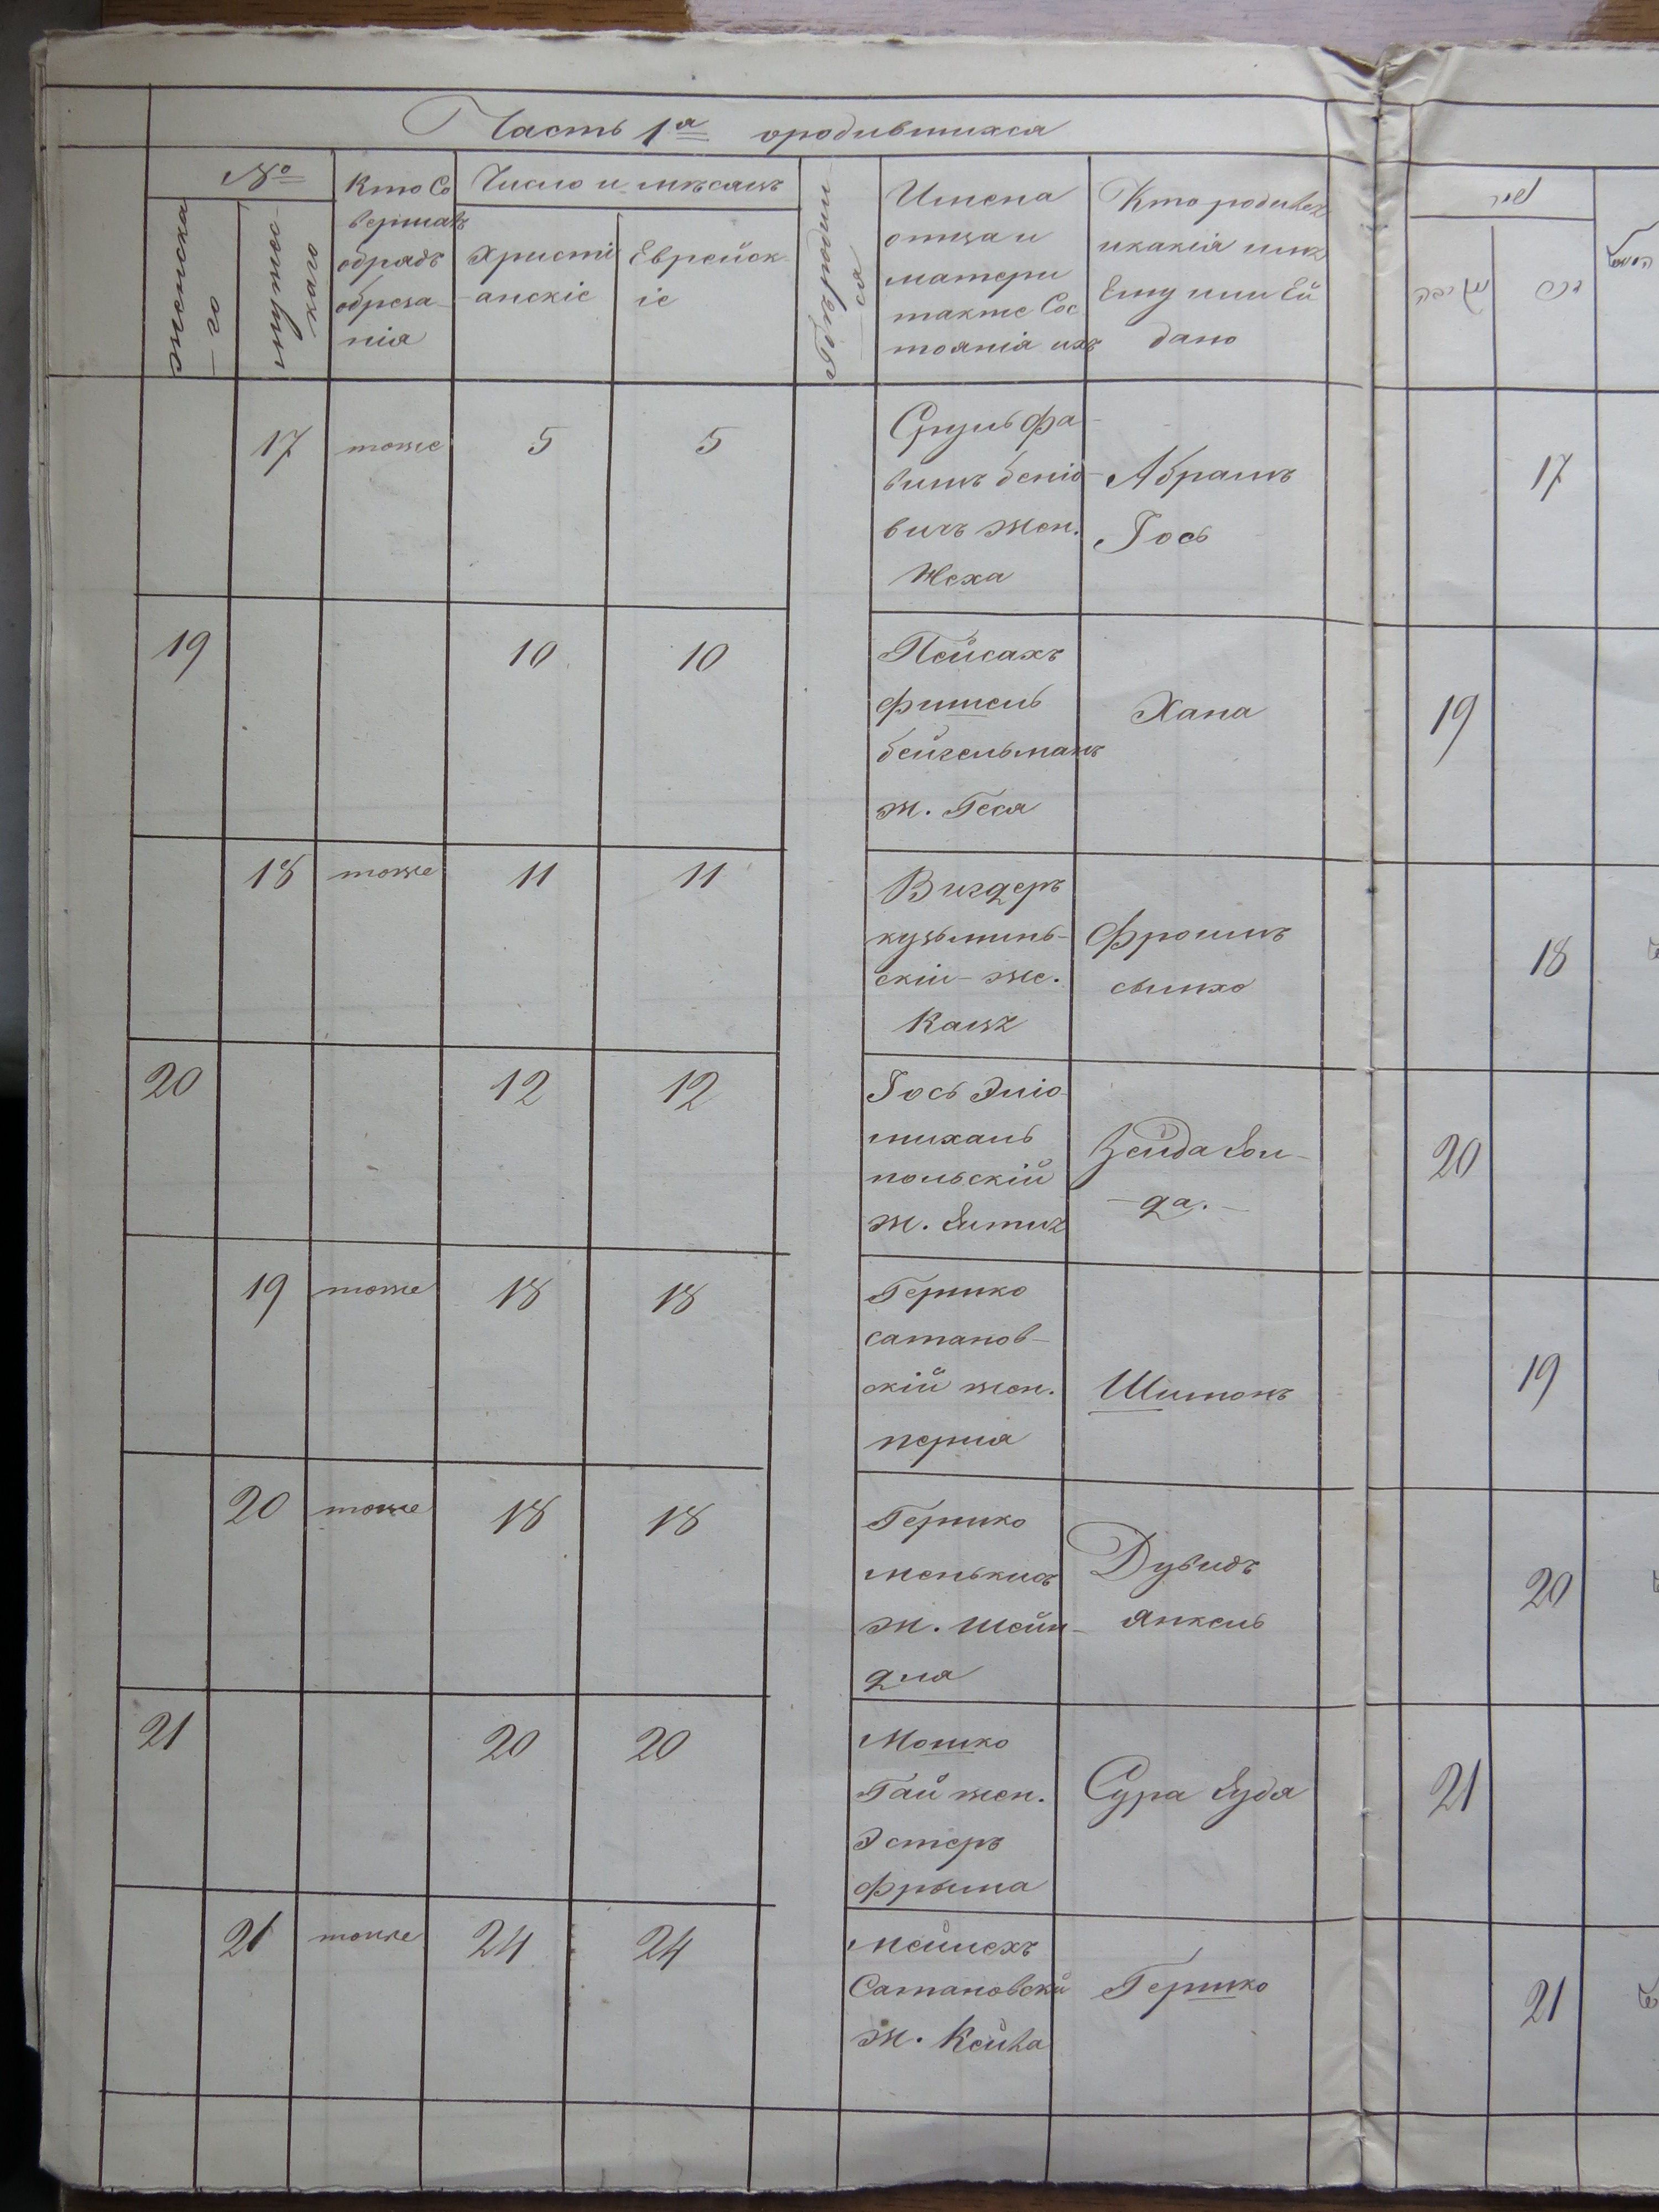 Часть 1ª ородившихся
№
Женска
-го
мужес-
каго
Кто Со
вершалъ
обрядъ
обреза-
нія
Число и мѣсяцъ
Христі
анскіе
Еврейск
іе
Гдѣ родил-
ся
Имена
отца и
матери
также Сос
тоянія ихъ
Кто родився
икакіа имя
Ему или Ей
дано
17 тоже 5 5
Сруль фа-
беніо-
вичъ жен.
Неха
Абрамъ
Іось
17
19 10 10
Пейсахъ
фишель
бейгельманъ
ж. Геся
Хана
19
18 тоже 11 11
Вигдеръ
кузьминь-
скій-же.
Фроимъ
18
20 12 12
Іось Эліо
михаль
польскій
ж.
Зейда
20
19 тоже 18 18
Гершко
сатанов-
скій жен.
перля
Шимонъ
19
20 тоже 18 18
Гершко
ж. шейн-
для
Дувидъ
янкель
20
21 20 20
Мошко
Гай жен.
Эстеръ
фрыма
Сура
21
21 тоже 24 24
мейлехъ
Сатановскй
ж. Кейла
Гершко
21